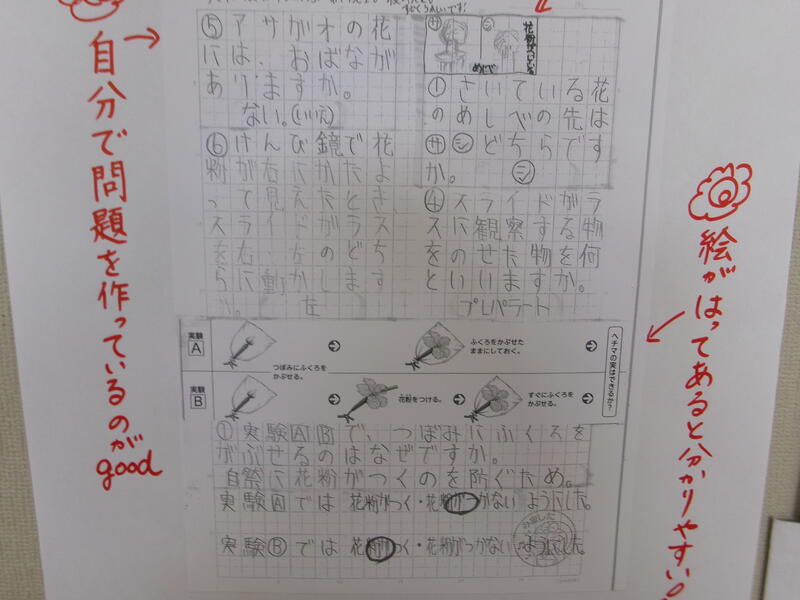 自分で問題を作っているのが
good
⑤アサガオの花
には、おばなが
ありますか。
ない。(いいえ)
⑥けんび鏡で花
粉が右にかたよ
って見えたとき、
スライドガラス
を右・左のどち
らに動かします
か。 左
サ
シ
花粉がついている
めしべ
①さいている花
のめしべの先は
㋚㋛どちらです
か。 ㋛
④スライドガラ
スに観察する物
をのせた物を何
といいますか。
プレパラート
絵がはってあると分かりやすい。
実験
A
つぼみにふくろを
かぶせる。
ふくろをかぶせた
ままにしておく。
ヘチマの実はできるか?
実験
B
花粉をつける。
すぐにふくろを
かぶせる。
①実験AⒷで、つぼみにふくろを
かぶせるのはなぜですか。
自然に花粉がつくのを防ぐため。
実験Aでは 花粉がつく・花粉がつかない ようにした。
実験Ⓑでは 花粉がつく・花粉がつかない ようにした。